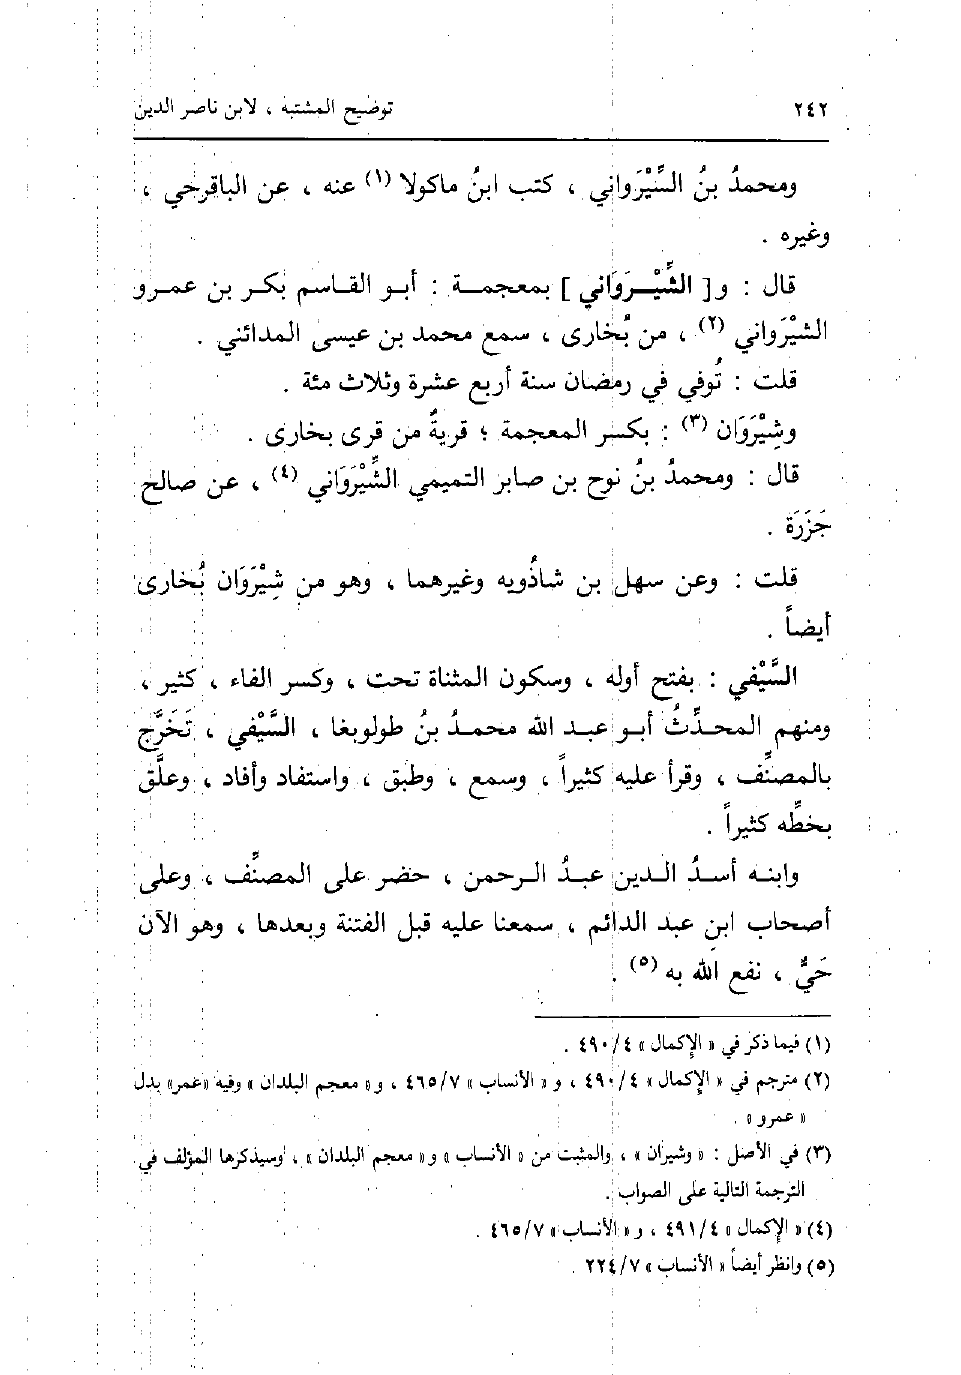 ٢٤٢ توضيح المشتبه ، لابن ناصر الدين
ومحمدُ بنُ السِّيْرَواني ، كتب ابنُ ماكولا (١) عنه ، عن الباقرحي ،
وغيره .
قال : و[ الشِّيْرَوَاني ] بمعجمة : أبو القاسم بكر بن عمرو
الشيْرَواني (٢) ، من بُخارى ، سمع محمد بن عيسى المدائني .
قلت : تُوفي في رمضان سنة أربع عشرة وثلاث مئة .
وشِيْرَوَان (٣) : بكسر المعجمة ؛ قريةٌ من قرى بخارى .
قال : ومحمدُ بنُ نوح بن صابر التميمي الشِّيْرَوَاني (٤) ، عن صالح
جَزَرَة .
قلت : وعن سهل بن شاذُويه وغيرهما ، وهو من شِيْرَوَان بُخارى
أيضاً .
السَّيْفي : بفتح أوله ، وسكون المثناة تحت ، وكسر الفاء ، كثير ،
ومنهم المحدِّثُ أبو عبد الله محمدُ بنُ طولوبغا ، السَّيْفي ، تَخَرَّج
بالمصنِّف ، وقرأ عليه كثيراً ، وسمع ، وطبق ، واستفاد وأفاد ، وعلَّق
بخطِّه كثيراً .
وابنه أسدُ الدين عبدُ الرحمن ، حضر على المصنِّف ، وعلى
أصحاب ابن عبد الدائم ، سمعنا عليه قبل الفتنة وبعدها ، وهو الآن
حَيٌّ ، نفع الله به (٥) .
(١) فيما ذكر في « الإكمال » ٤٩٠/٤ .
(٢) مترجم في « الإكمال » ٤٩٠/٤ ، و « الأنساب » ٤٦٥/٧ ، و« معجم البلدان » وفيه «عمر» بدل
« عمرو » .
(٣) في الأصل : « وشيران » ، والمثبت من « الأنساب » و« معجم البلدان » ، وسيذكرها المؤلف في
الترجمة التالية على الصواب .
(٤) « الإكمال » ٤٩١/٤ ، و « الأنساب » ٤٦٥/٧ .
(٥) وانظر أيضاً « الأنساب » ٢٢٤/٧ .